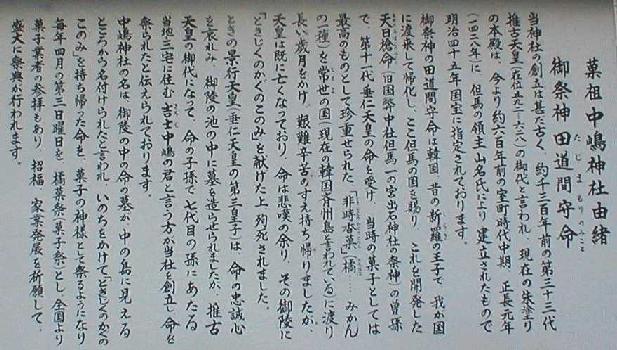 菓祖中嶋神社由緒
御祭神田道間守命
たじまもりのみこと
当神社の創立は甚だ古く、約千三百年前の第三十三代
推古天皇(在位五九二−六二八)の御代と言われ、現在の朱塗り
の本殿は、今より約六百年前の室町時代中期、正長元年
(一四二八年)に但馬の領主山名氏により建立されたもので
明治四十五年国宝に指定されております。
御祭神の田道間守命は韓国、昔の新羅の王子で、我が国
に渡来して帰化し、ここ但馬の国を賜り、これを開発した
天日槍命(旧国幣中社但馬一の宮出石神社の祭神)の曽孫
で、第十一代垂仁天皇の命を受け、当時の菓子としては
最高のものとして珍重せられた「非時香菓」(橘…みかん
の一種)を常世の国(現在の韓国済州島と言われている)に渡り
長い歳月をかけ、艱難辛苦のすえ持ち帰りましたが、
天皇は既に亡くなっており、命は悲嘆の余り、その御陵に
「ときじくのかくのこのみ」を献げた上、殉死されました。
ときの景行天皇(垂仁天皇の第三皇子)は、命の忠誠心
を哀れみ、御陵の池の中に墓を造らせられましたが、推古
天皇の御代になって、命の子孫で七代目の孫にあたる
当地三宅に住む吉士中嶋の君と言う方が当社を創立し命を
祭られたと伝えられております。
中嶋神社の名は、御陵の中の命の墓が、中の島に見える
ところから名付けられたと言われ、いのちをかけて「ときじくのかくの
このみ」を持ち帰った命を、菓子の神様として祭るようになり
毎年四月の第三日曜日を(橘菓祭)(菓子祭)とし全国より
菓子業者の参拝もあり、招福、家業発展を祈願して、
盛大に祭典が行われます。